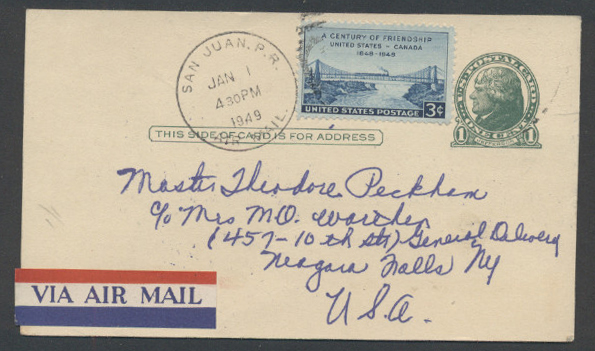 SAN JUAN, P.R.
JAN 1
4 30 PM
1949
AIR MAIL
A CENTURY OF FRIENDSHIP
UNITED STATES - CANADA
1848-1948
UNITED STATES POSTAGE 3¢
U.S. POSTAL CARD
1 ONE CENT 1
JEFFERSON
THIS SIDE OF CARD IS FOR ADDRESS
Master Theodore Peckham
c/o Mrs M.O.
(457-10 th str) General Delivery
Niagara Falls Ny
U.S.A.
VIA AIR MAIL